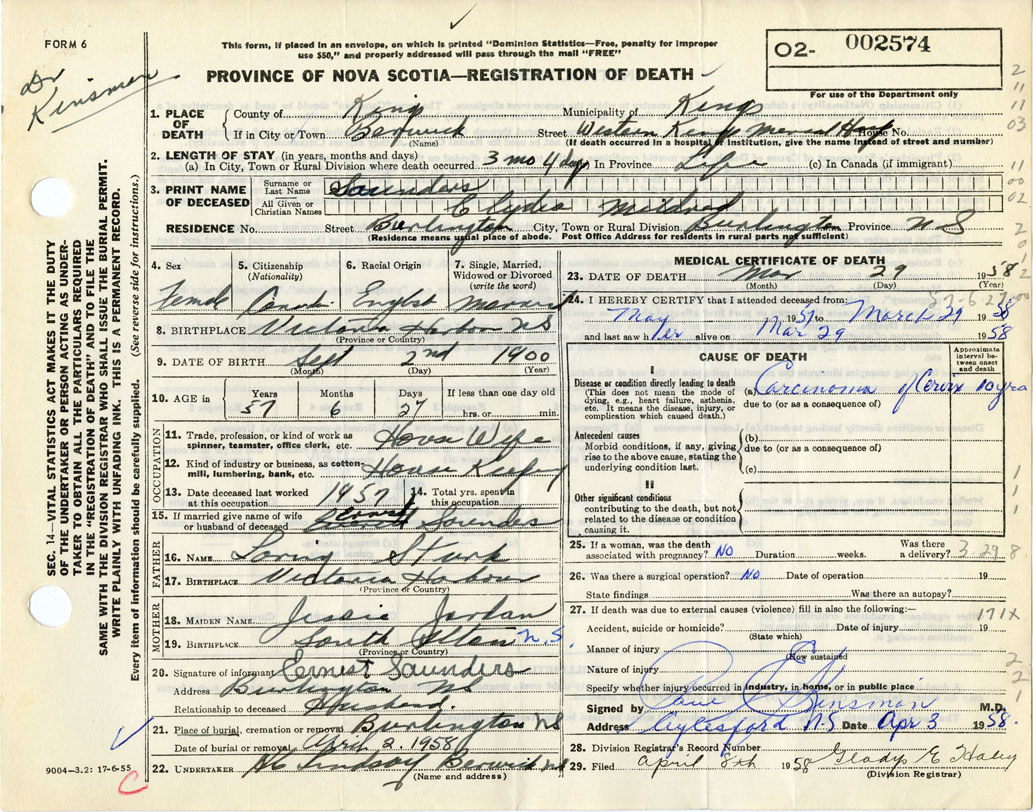 FORM 6
This form, if placed in an envelope, on which is printed "Dominion Statistics—Free, penalty for improper
use $50," and properly addressed will pass through the mail "FREE"
O2- 002574
For use of the Department only
Dr
Kinsman
PROVINCE OF NOVA SCOTIA—REGISTRATION OF DEATH
1. PLACE OF DEATH
County of Kings Municipality of Kings
If in City or Town Berwick Street Western Kings Memorial Hosp House No.
(Name) (If death occurred in a hospital or institution, give the name instead of street and number)
2. LENGTH OF STAY (in years, months and days)
(a) In City, Town or Rural Division where death occurred 3 mo 4 days In Province Life (c) In Canada (if immigrant).
3. PRINT NAME OF DECEASED
Surname or Last Name Saunders
All Given or Christian Names Clydia Mildred
RESIDENCE No. Street Burlington City, Town or Rural Division Burlington Province N S
(Residence means usual place of abode. Post Office Address for residents in rural parts not sufficient)
4. Sex
Female
5. Citizenship
(Nationality)
Canada
6. Racial Origin
English
7. Single, Married,
Widowed or Divorced
(write the word)
Married
8. BIRTHPLACE Victoria Harbor NS
(Province or Country)
9. DATE OF BIRTH Sept 2nd 1900
(Month) (Day) (Year)
10. AGE in
Years 57
Months 6
Days 27
If less than one day old
hrs. or min.
OCCUPATION
11. Trade, profession, or kind of work as
spinner, teamster, office clerk, etc. House Wife
12. Kind of industry or business, as cotton-
mill, lumbering, bank, etc. House Keeping
13. Date deceased last worked
at this occupation 1957
14. Total yrs. spent in
this occupation
15. If married give name of wife
or husband of deceased Ernest Saunders
FATHER
16. NAME Loring Stark
17. BIRTHPLACE Victoria Harbour
(Province or Country)
MOTHER
18. MAIDEN NAME Jessie Jordan
19. BIRTHPLACE South Alton N.S.
(Province or Country)
20. Signature of informant Ernest Saunders
Address Burlington NS
Relationship to deceased Husband.
21. Place of burial, cremation or removal Burlington NS
Date of burial or removal April 2. 1958
22. UNDERTAKER Lindsay Berwick NS
(Name and address)
9004—3.2: 17-6-55
C
SEC. 14—VITAL STATISTICS ACT MAKES IT THE DUTY
OF THE UNDERTAKER OR PERSON ACTING AS UNDER-
TAKER TO OBTAIN ALL THE PARTICULARS REQUIRED
IN THE "REGISTRATION OF DEATH" AND TO FILE THE
SAME WITH THE DIVISION REGISTRAR WHO SHALL ISSUE THE BURIAL PERMIT.
WRITE PLAINLY WITH UNFADING INK. THIS IS A PERMANENT RECORD.
Every item of information should be carefully supplied. (See reverse side for instructions.)
MEDICAL CERTIFICATE OF DEATH
23. DATE OF DEATH Mar 29 1958
(Month) (Day) (Year)
57-6-27
24. I HEREBY CERTIFY that I attended deceased from:
May 1957 to March 29 1958
and last saw her alive on Mar 29 1958
CAUSE OF DEATH
Approximate interval between onset and death
I
Disease or condition directly leading to death
(This does not mean the mode of
dying, e.g., heart failure, asthenia,
etc. It means the disease, injury, or
complication which caused death.)
(a) Carcinoma of Cervix 10 yrs
due to (or as a consequence of)
Antecedent causes
Morbid conditions, if any, giving
rise to the above cause, stating the
underlying condition last.
(b)
due to (or as a consequence of)
(c)
II
Other significant conditions
contributing to the death, but not
related to the disease or condition
causing it.
25. If a woman, was the death
associated with pregnancy? NO Duration weeks. Was there
a delivery? 3.29.8
26. Was there a surgical operation? NO Date of operation 19
State findings Was there an autopsy?
27. If death was due to external causes (violence) fill in also the following:—
171X
Accident, suicide or homicide? Date of injury 19
(State which)
Manner of injury
(How sustained)
Nature of injury
Specify whether injury occurred in industry, in home, or in public place
Signed by Kinsman M.D.
Address Aylesford N.S Date Apr 3 1958.
28. Division Registrar's Record Number
29. Filed April 8th 1958 Gladys E Haley
(Division Registrar)